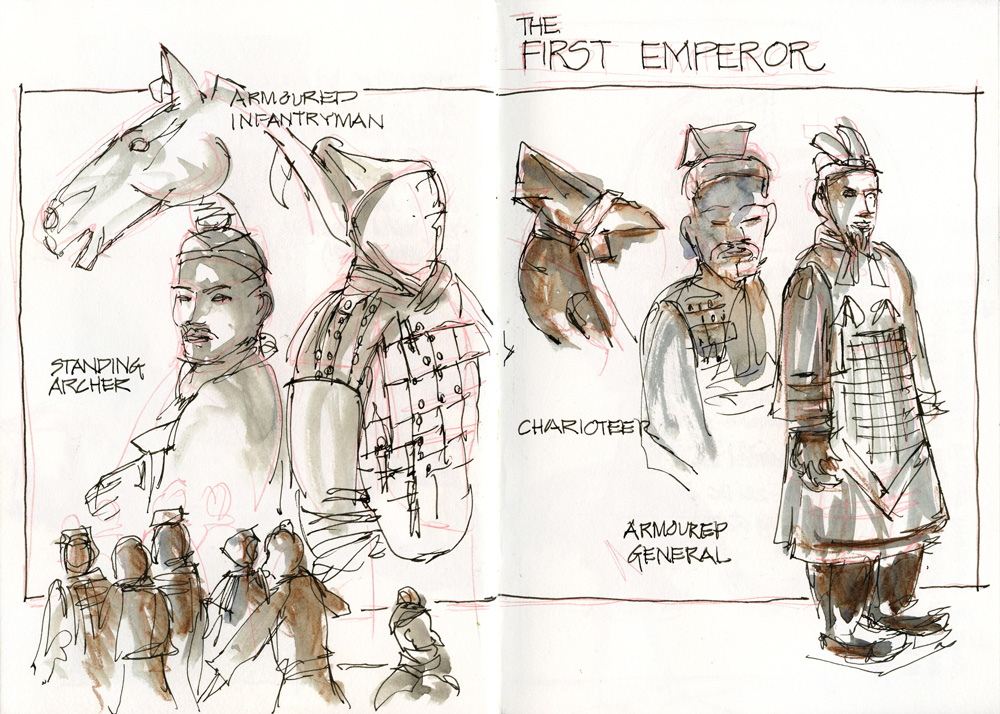 THE
FIRST EMPEROR
ARMOURED
INFANTRYMAN
STANDING
ARCHER
CHARIOTEER
ARMOURED
GENERAL